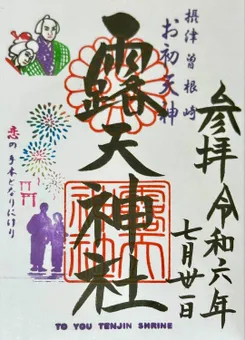 摂津曽根崎
お初天神
露天神社
参拝 令和六年
七月廿一日
恋の手本となりにけり
TO YOU TENJIN SHRINE